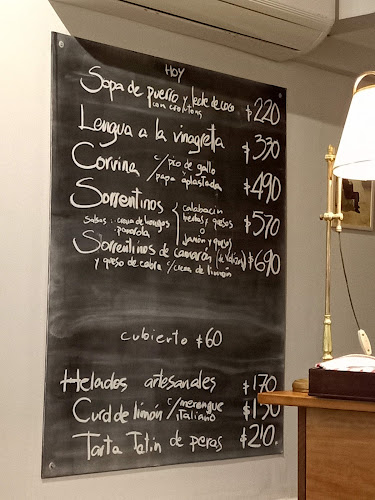 HOY
Sopa de puerro y leche de coco $220
con croutons
Lengua a la vinagreta $330
Corvina c/ pico de gallo $490
papa aplastada
Sorrentinos calabacin
hierbas y quesos $570
salsas: crema de hongos o
jamón y queso
Sorrentinos de camarón $690
y queso de cabra c/crema de limón
cubierto $60
Helados artesanales $170
Curd de limón c/merengue $150
italiano
Tarta Tatin de peras $210.